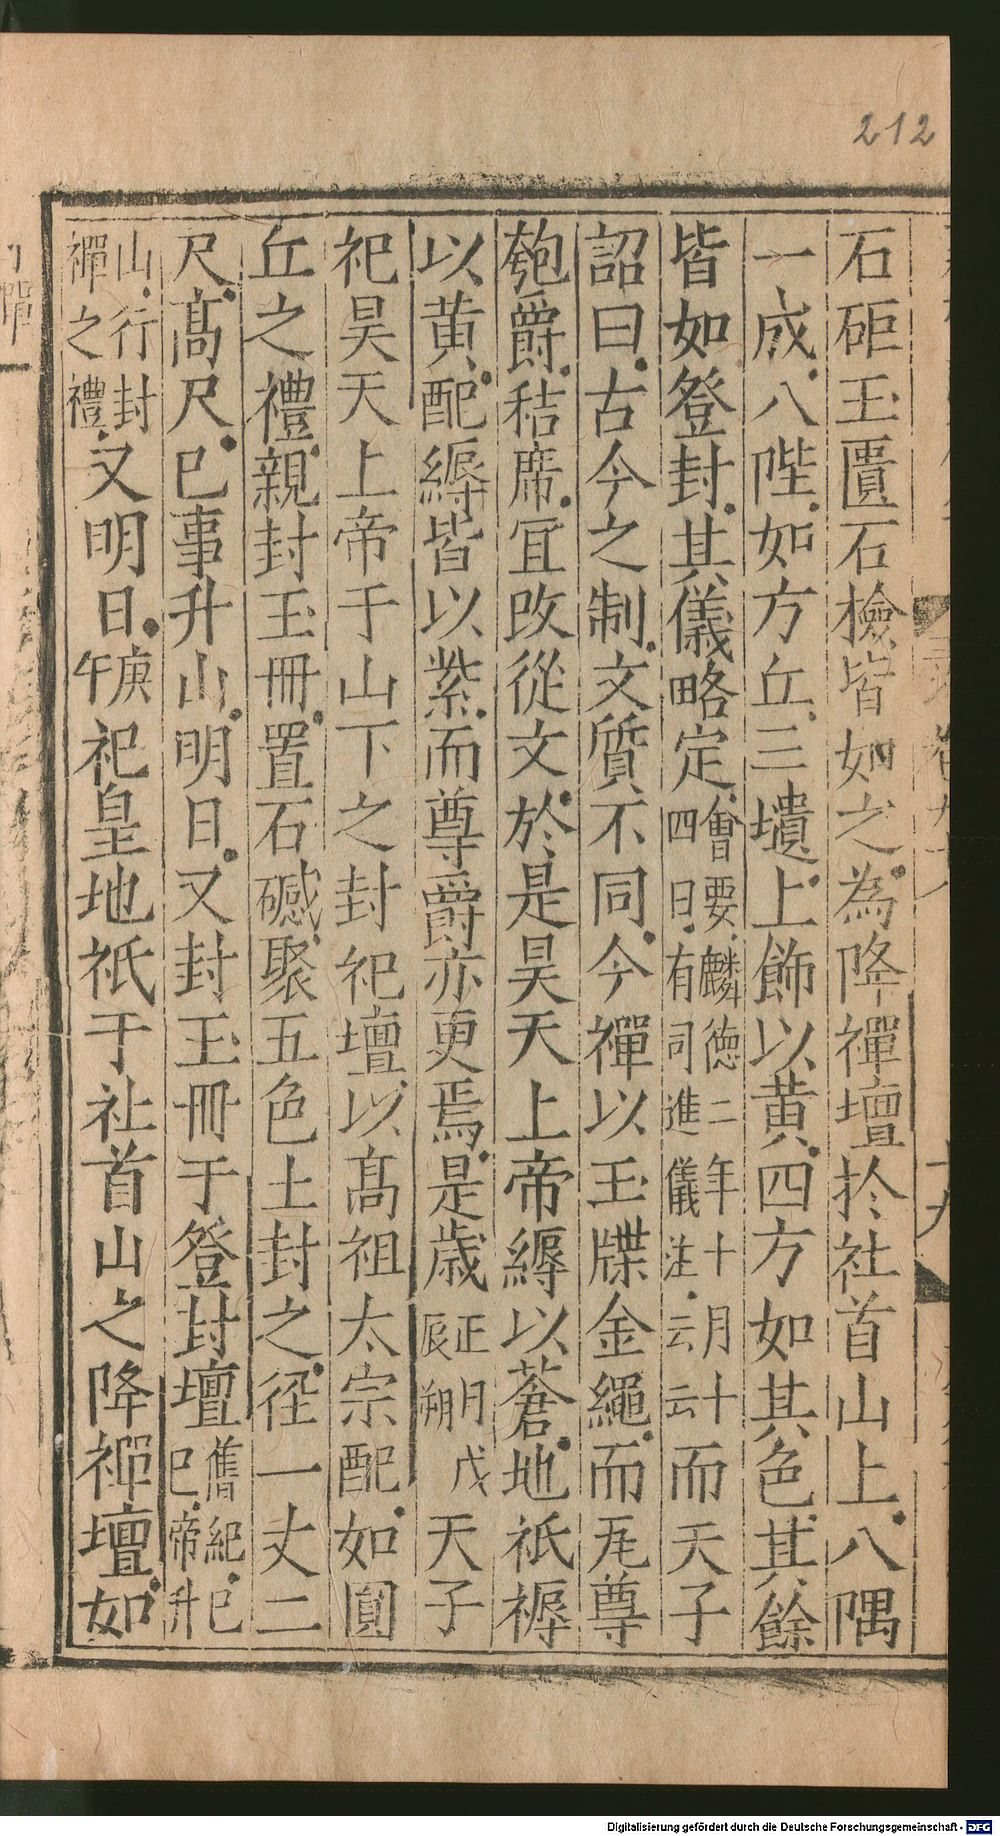 212
石䂑玉匱石檢皆如之為降禪壇於社首山上八隅
一成八陛如方丘三壝上飾以黃四方如其色其餘
皆如登封其儀略定會要麟德二年十月十四日有司進儀注云云而天子
詔曰古今之制文質不同今禪以玉牒金繩而瓦尊
匏爵秸席宜改從文於是昊天上帝縟以蒼地祇褥
以黃配縟皆以紫而尊爵亦更焉是歲正月戊辰朔天子
祀昊天上帝于山下之封祀壇以高祖太宗配如圓
丘之禮親封玉冊置石䃭聚五色土封之徑一丈二
尺高尺已事升山明日又封玉冊于登封壇舊紀己巳帝升
山行封禪之禮又明日庚午祀皇地祇于社首山之降禪壇如
Digitalisierung gefördert durch die Deutsche Forschungsgemeinschaft - DFG